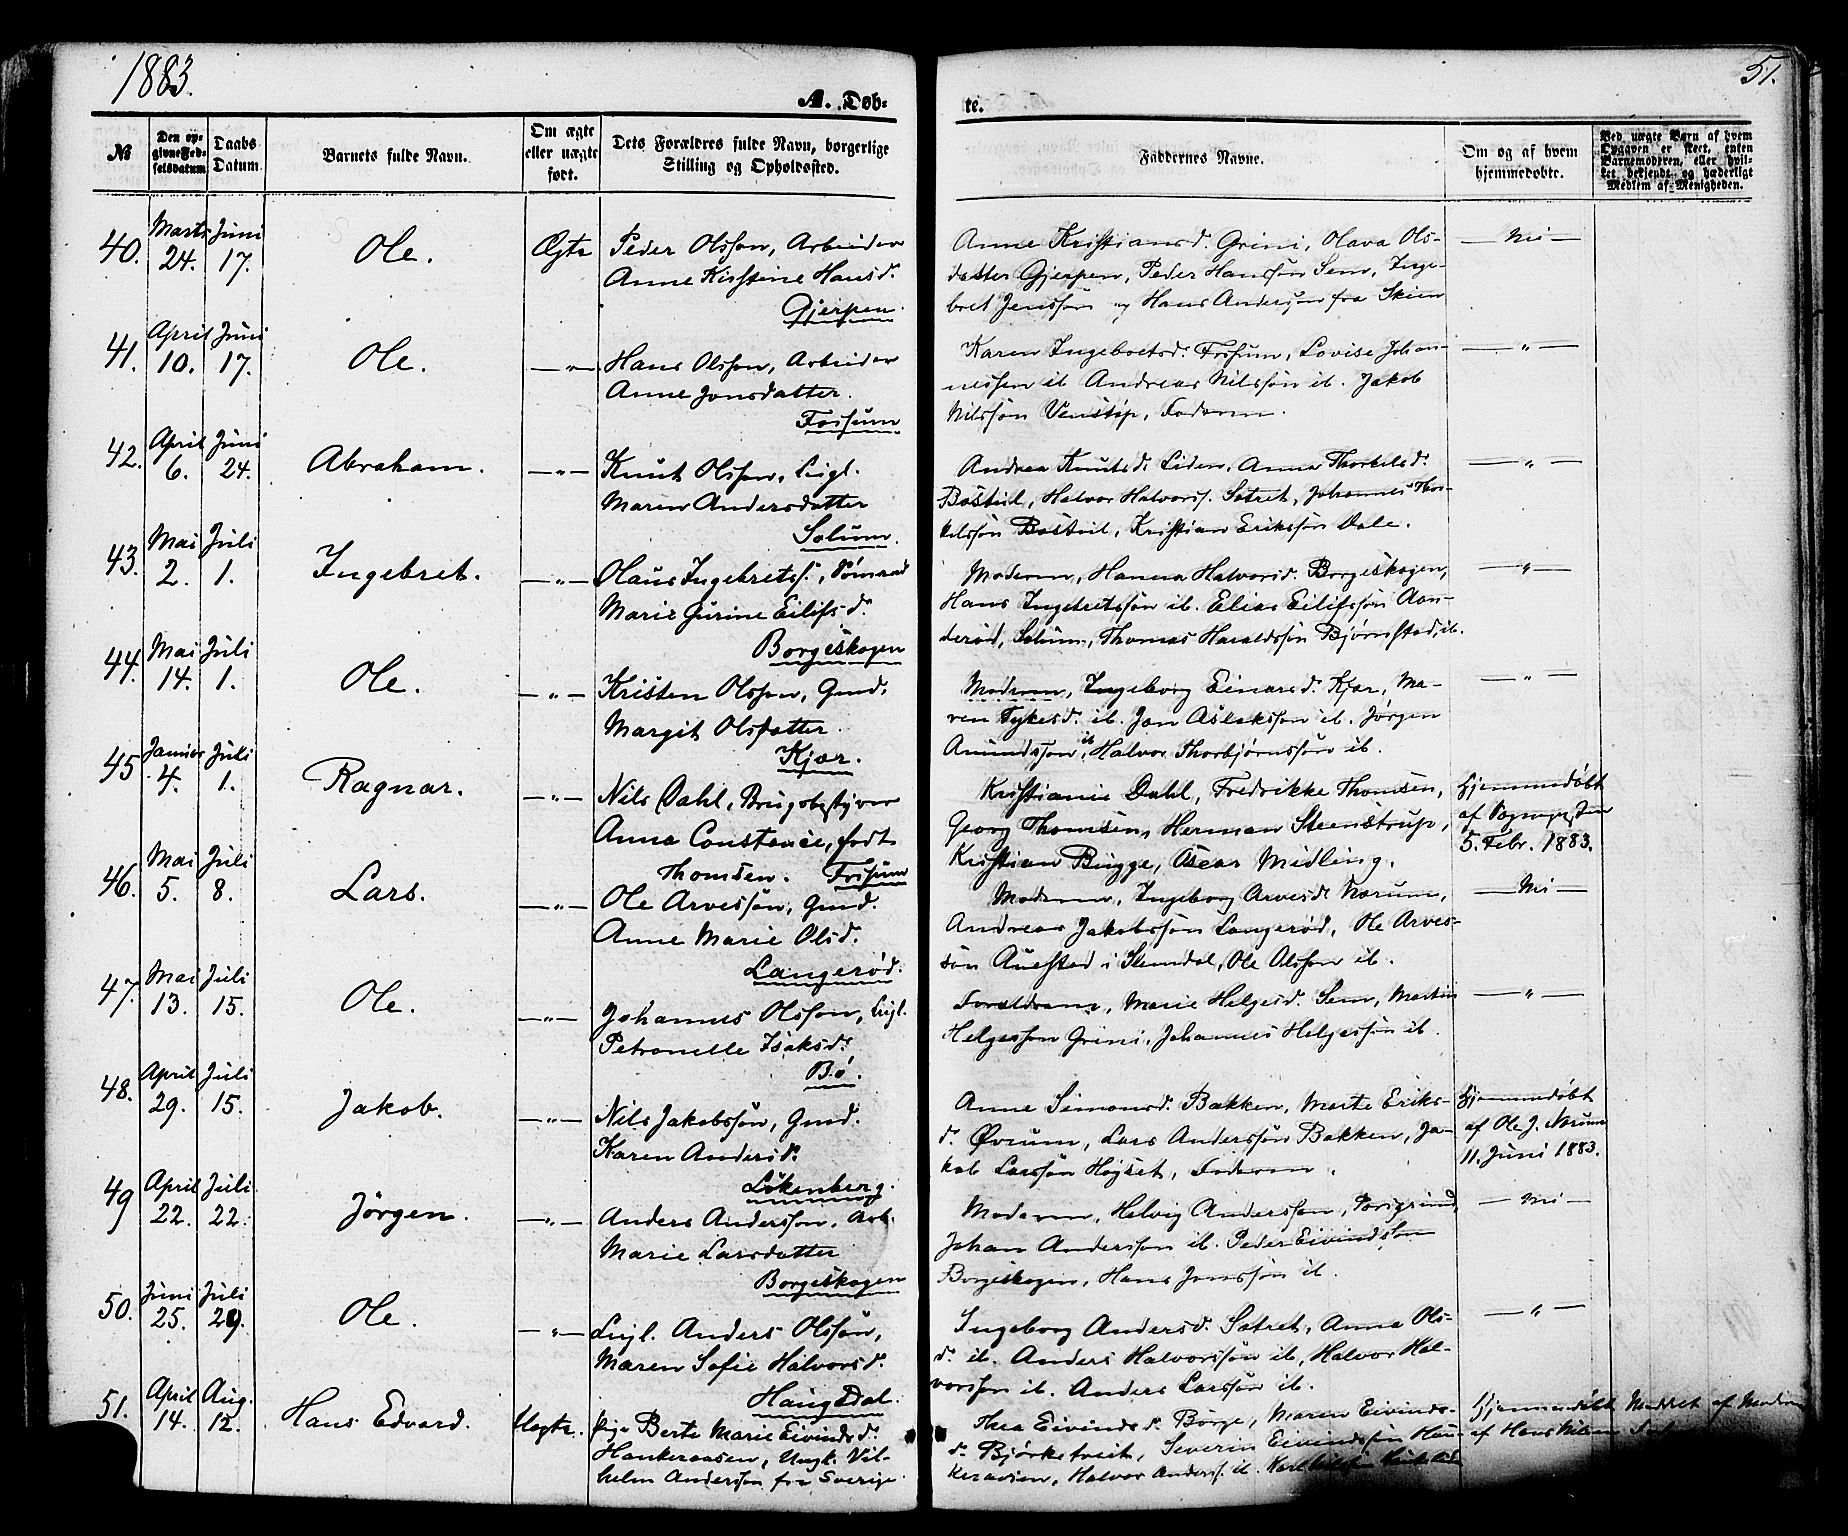 1883.
51.
A. Døb-
te.
№
Den op-
givne Fød-
selsdatum
Daabs
Datum
Barnets fulde Navn.
Om ægte
eller uægte
født.
Dets Forældres fulde Navn, borgerlige
Stilling og Opholdssted.
Faddernes Navne.
Om og af hvem
hjemmedøbte.
Ved uægte Barn af hvem
Opgaven er skeet, enten
Barnemoderen, eller hvil-
ket bekjendt og hæderligt
Medlem af Menigheden.
40. Marts 24. Juni 17. Ole. Ægte
Peder Olsson, Arbeider
Anne Kirstine Hansd.
Gjerpen.
Anne Kristiansd. Grini, Olava Ols-
datter Gjerpen, Peder Hansson Sem, Inge-
bret Jensson og Hans Anderson fra Skien
— Nei —
41. April 10. Juni 17. Ole. — „ —
Hans Olsson, Arbeider
Anne Jonsdatter.
Fossum
Karen Ingebretsd. Fossum, Lovise Johan-
nessen ib. Andreas Nilsson ib. Jakob
Nilsson Venstøp, Faderen.
— „ —
42. April 6. Juni 24. Abraham. — „ —
Knut Olsson, Leigl.
Maren Andersdatter
Solum.
Andrea Knutsd. Liden, Anna Thorkelsd.
Bøstul, Halvor Halvorss. Sætret, Johannes Thor-
kelsson Bøstul, Kristian Eriksson Dale.
— „ —
43. Mai 2. Juli 1. Ingebret. — „ —
Olaus Ingebretss., Tømrad
Marie Gurine Eilifsd.
Borgeskogen
Moderen, Hanna Halvorsd. Borgeskogen,
Hans Ingebretsson ib. Elias Eilifsson Aan-
derød, Solum, Thomas Haraldsson Bjørnstad, ib.
— „ —
44. Mai 14. Juli 1. Ole. — „ —
Kristen Olsson, Gmd.
Margit Olsdatter.
Kjær.
Moderen, Ingeborg Einarsd. Kjær, Ma-
ren Tykesd. ib. Jon Aslaksson ib. Jørgen
Amundsson ib, Halvor Thorbjørnsson ib.
— „ —
45 Januar 4. Juli 1. Ragnar. — „ —
Nils Dahl, Brugsbestyrer
Anna Constance, født
Thomsen. Fossum
Kristianie Dahl, Fredrikke Thomsen,
Georg Thomsen, Herman Steenstrup,
Kristian Bugge, Oscar Midling.
Hjemmedøbt
af Sognepresten
5. Febr. 1883.
46. Mai 5. Juli 8. Lars. — „ —
Ole Arvesson, Gmd.
Anne Marie Olsd.
Langerød.
Moderen, Ingeborg Arvesd. Nærum,
Andreas Jakobsson Langerød, Ole Arves-
søn Auestad i Slemdal, Ole Olsson ib.
— Nei —
47. Mai 13. Juli 15. Ole. — „ —
Johannes Olsson, Leigl.
Petronelle Isaksd.
Bø.
Forældrene, Marie Helgesd. Sem, Martin
Helgesson Grini, Johannes Helgesson ib.
— „ —
48. April 29. Juli 15. Jakob. — „ —
Nils Jakobsson, Gmd.
Karen Andersd.
Løkenberg.
Anne Simonsd. Bakken, Marte Eriks-
d. Øvrum, Lars Andersson Bakken, Ja-
kob Larsson Højset, Faderen.
Hjemmedøbt
af Ole J. Nærum
11. Juni 1883.
49 April 22. Juli 22. Jörgen. — „ —
Anders Andersson, Arb.
Marie Larsdatter
Borgeskogen
Moderen, Helvig Andersson, Porsgrund,
Johan Andersson ib. Peder Eivindsson
Borgeskogen, Hans Jonsson ib.
— Nei —
50. Juni 25. Juli 29. Ole. — „ —
Leigl. Anders Olsson,
Maren Sofie Halvorsd.
Haugdal.
Ingeborg Andersd. Sætret, Anna Ols-
d. ib. Anders Halvorsson ib, Halvor Hal-
vorsson ib. Anders Larsson ib.
— „ —
51. April 14. Aug. 12. Hans Edvard. Uægte.
Pige Berte Marie Eivindsd.
Hankeraasen, Ungk. Vil-
helm Andersson fra Sverige.
Thea Eivindsd. Børge, Maren Eivinds-
d. Bjørketveit, Severin Eivindsson Han-
keraasen, Halvor Anderss. ib.
Hjemmedøbt
af Hans Nilsen
Meldet af Moderen